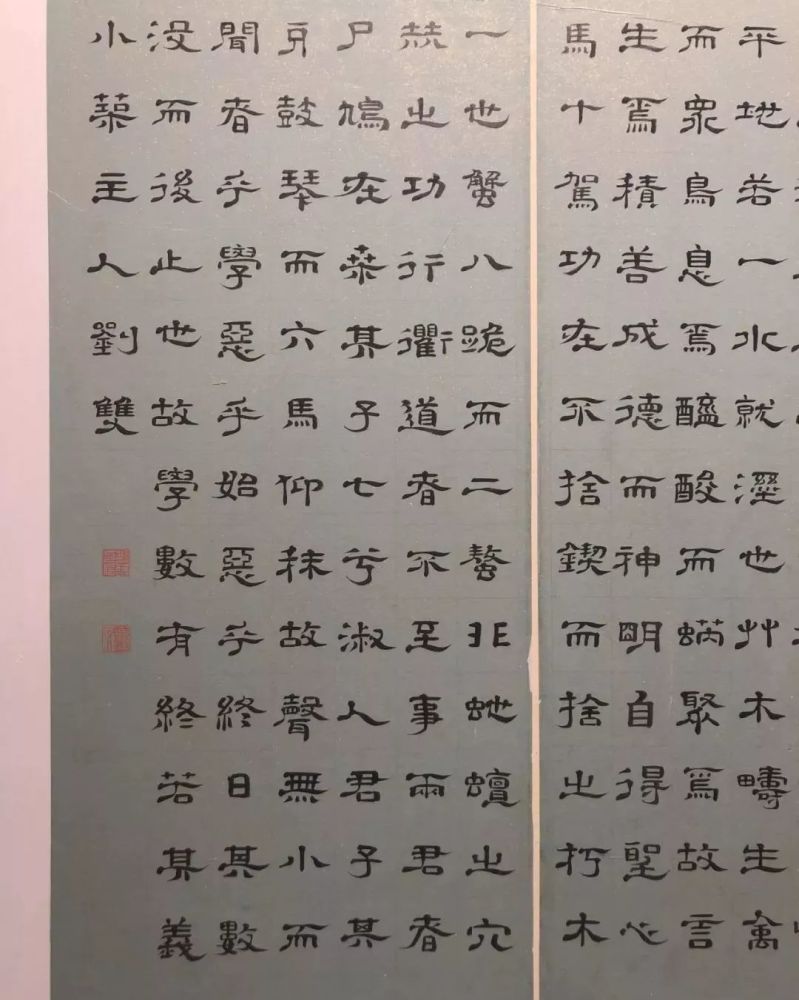 平地若一水就溼也艸木疇生禽
而衆鳥息焉醯酸而蜹聚焉故言
生焉積善成德而神明自得聖心
馬十駕功在不捨鍥而捨之朽木
一也蟹八跪而二螯非虵蟺之穴
赫之功行衢道者不至事兩君者
尸鳩在桑其子七兮淑人君子其
牙鼓琴而六馬仰秣故聲無小而
聞者乎學惡乎始惡乎終曰其數
没而後止也故學數有終若其義
小築主人劉雙